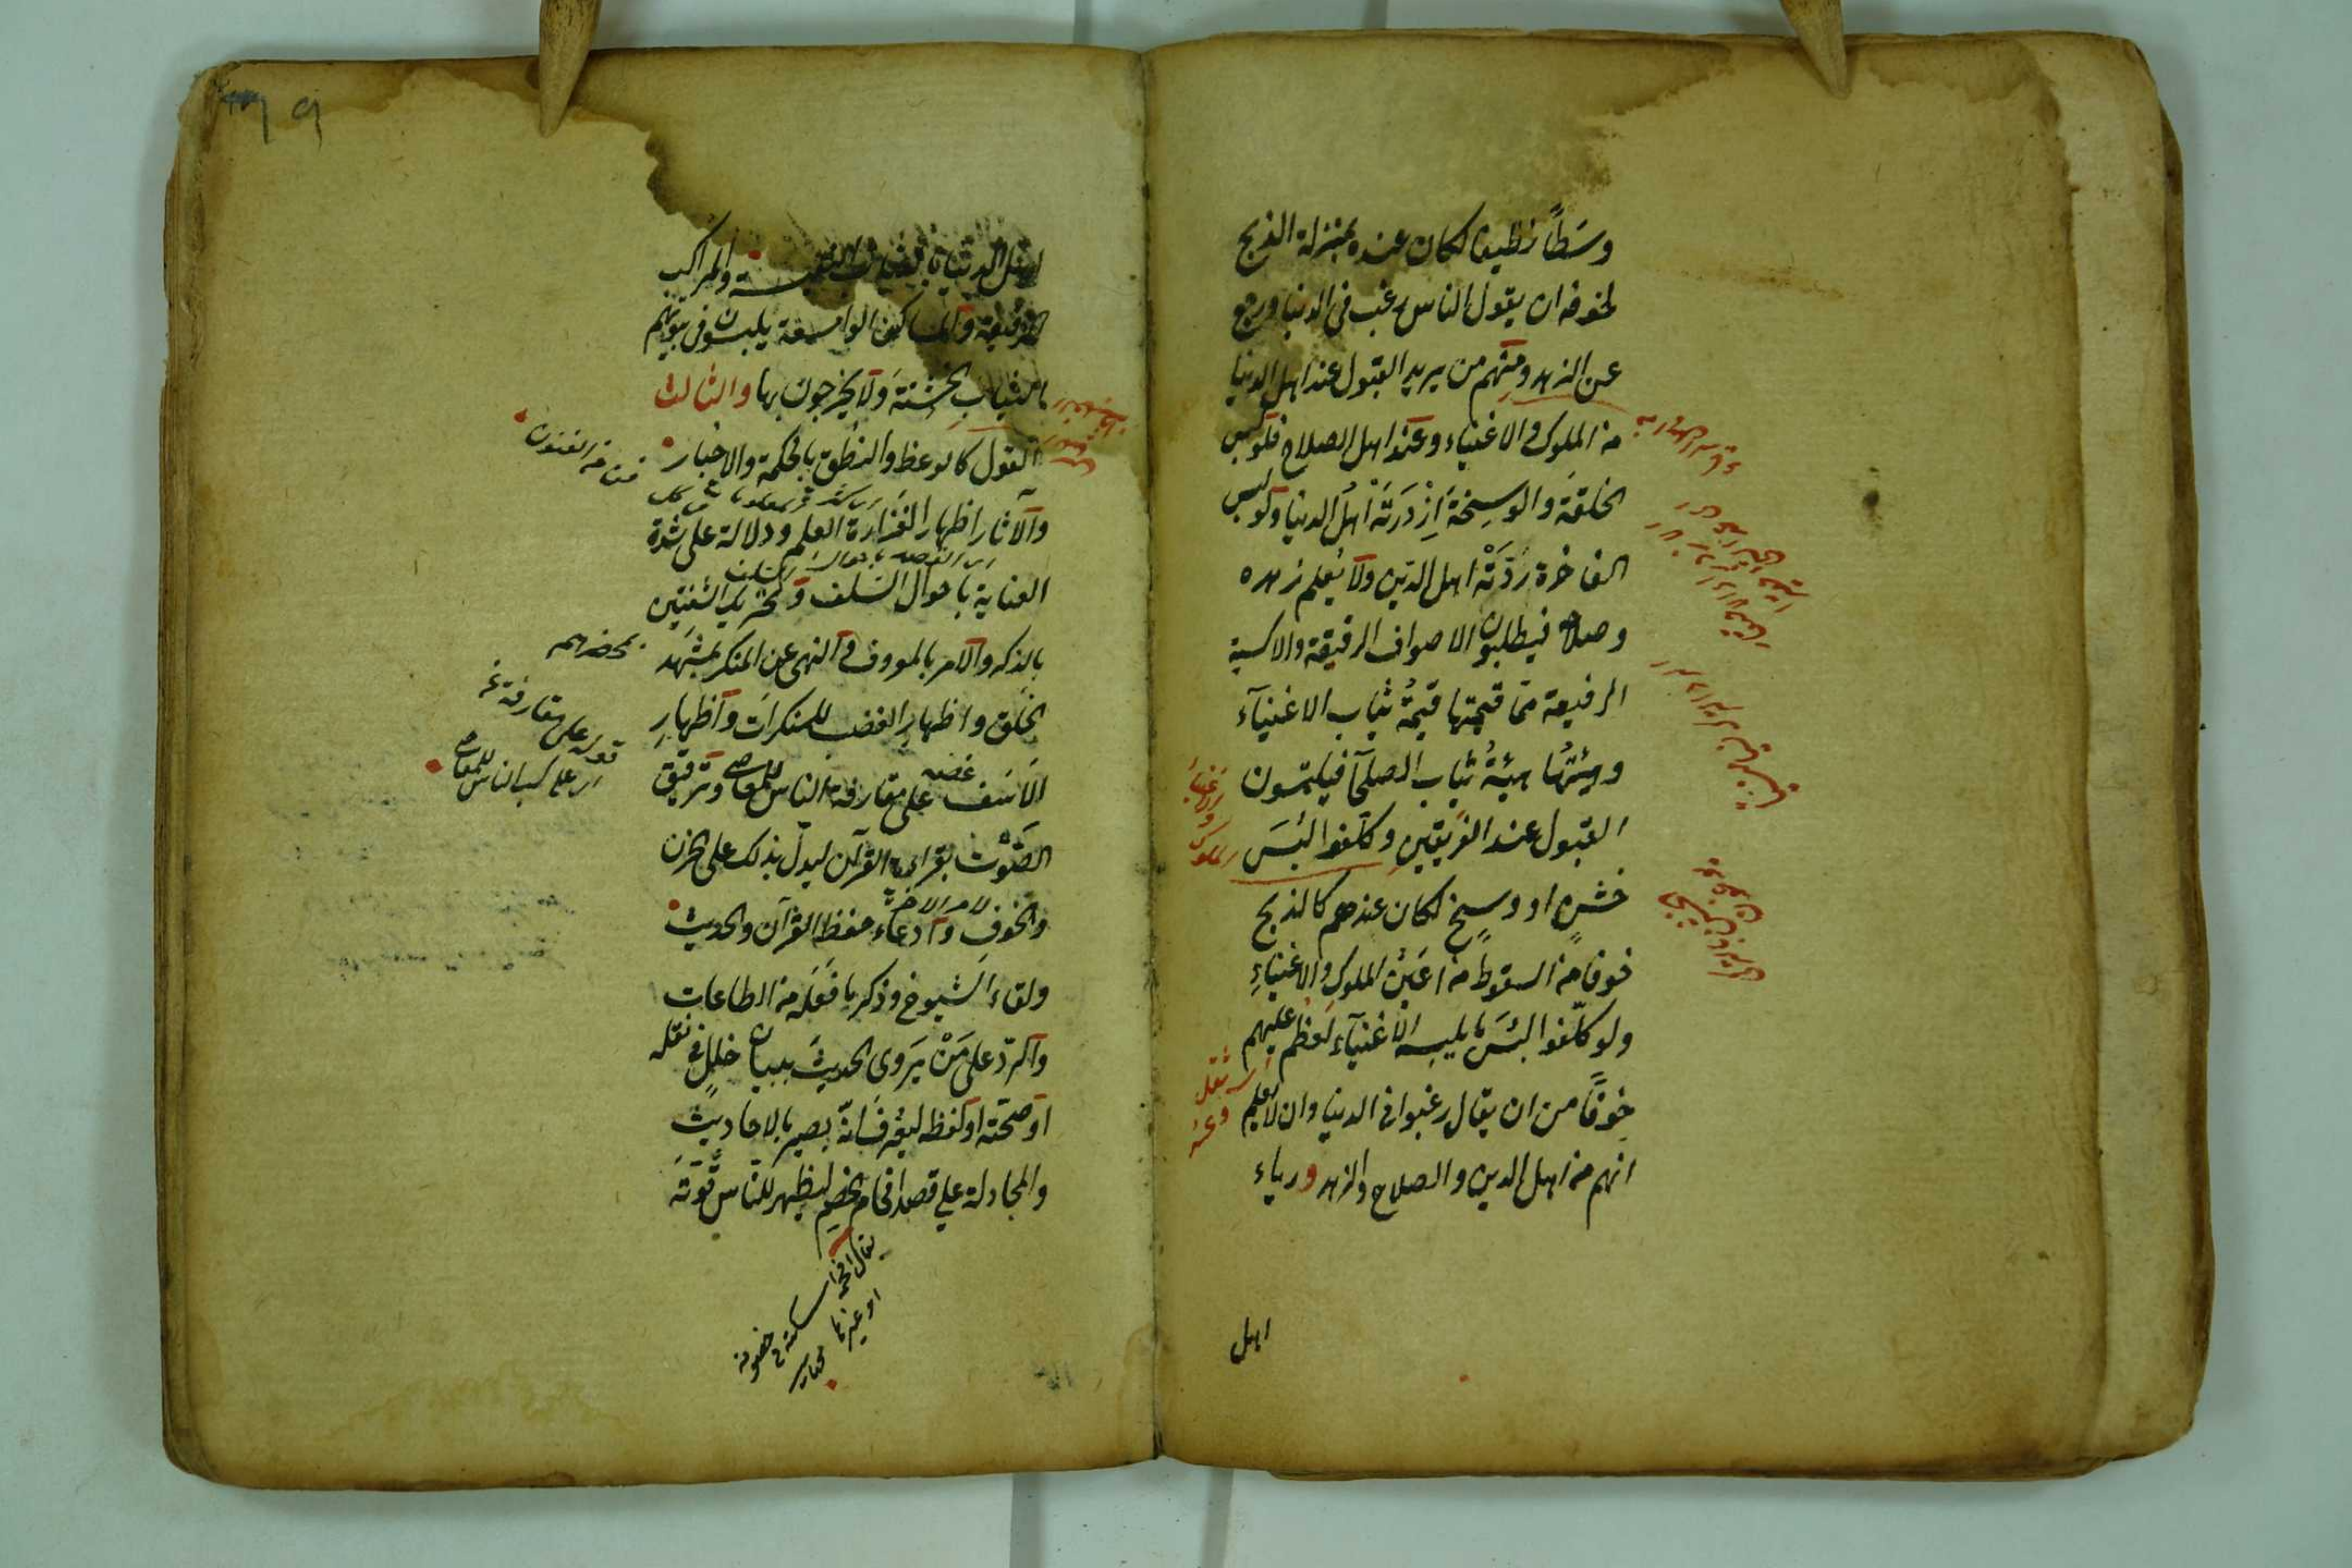 وسَطًا نظيفا لكان عنده بمنزلة الذبح
لخوفه ان يقول الناس رغب في الدنيا ورجع
عن الزهد ومنهم من يريد القبول عند اهل الدنيا
من الملوك والاغنياء وعند اهل الصلاح فلو لبس
الخلقة والوسخة ازْدَرَتْه اهل الدنيا ولو لبس
الفاخرة رَدَّتْه اهل الدين ولا يُعلم زهده
وصلاحه فيطلبون الاصواف الرقيقة والاكسية
الرفيعة ممّا قيمتها قيمةُ ثياب الاغنيآء
وهيئتها هيئةُ ثياب الصلحآء فيلتمسون
القبول عند الفريقين وكلّفوا لبْسَ
خشنٍ او وسخٍ لكان عندهم كالذبح
خوفا من السقوط من اعين الملوك والاغنياء
ولو كلّفوا لبْسَ ما يلبسه الاغنيآء لعظم عليهم
خوفًا من ان يقال رغبوا في الدنيا وان لا يُعلم
انهم من اهل الدين والصلاح والزهد ورياء
والاغنياء
الملوك
اي ثقل
وعسر
اهل
اهل الدنيا بالثياب النفيسة والمراكب
الرفيعة والمساكن الواسعة يلبسون في بيوتهم
الثياب الخشنة ولا يخرجون بها والثالث
القول كالوعظ والنطق بالحكمة والاخبار
والآثار اظهارا لغزارة العلم ودلالة على شدة
العناية باحوال السلف وتحريك الشفتين
بالذكر والامر بالمعروف والنهي عن المنكر بمشهد
الخلق واظهار الغضب للمنكرات واظهار
الاسف على مقارفة الناس للمعاصي وترقيق
الصوت بقراءة القرآن ليدلّ بذلك على الحزن
والخوف وادعاء حفظ القرآن والحديث
ولقاء الشيوخ وذكر ما فعله من الطاعات
والردّ على مَنْ يَروى الحديث ببيان خلل في نقله
او صحّته او لفظه ليعرف انّه بصير بالاحاديث
والمجادلة على قصد افحام الخصم ليظهر للناس قوّته
فن من الفنون
بمحضرهم
قوله على مقارفة
اي على كسب الناس للمعاصي
يقال افحمه اسكته في خصومة
او غيرها مختار